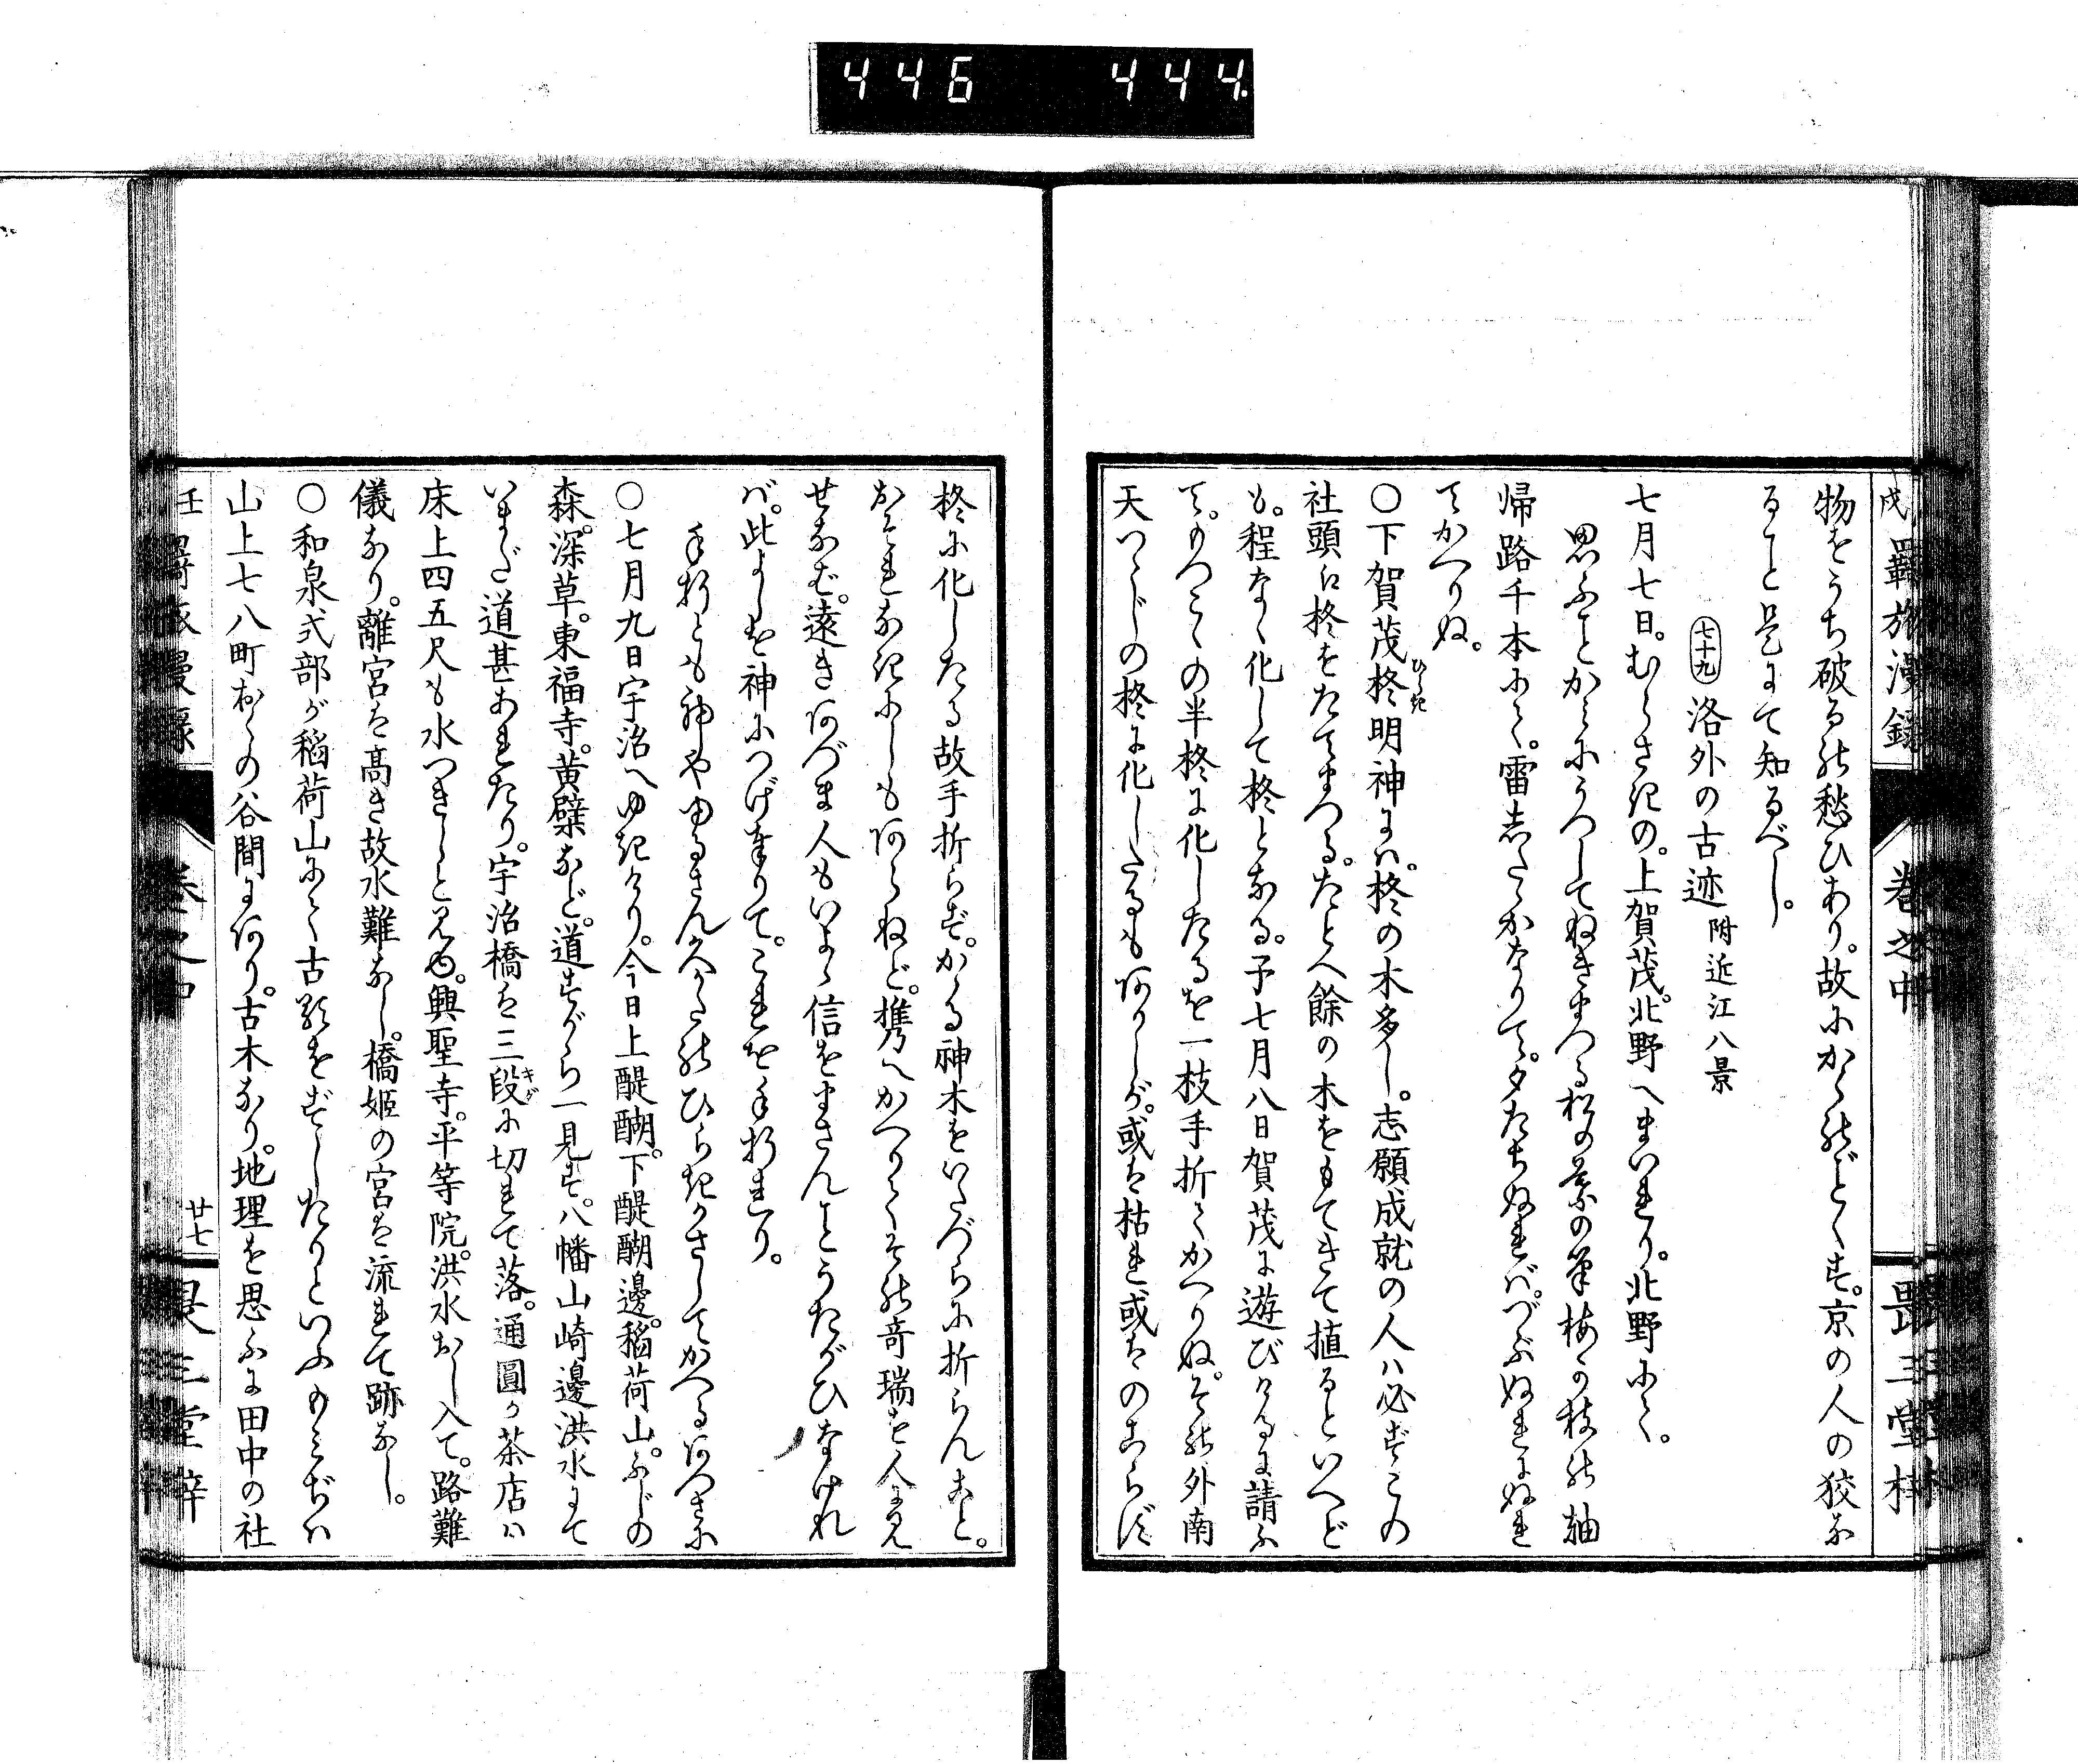 446 444
戌 羇旅漫録 巻之中 畏三堂梓
物をうち破るの愁ひあり。故にかくのごとくす。京の人の狡な
ること是にて知るべし。
七十九 洛外の古迹 附近江八景
七月七日。むらさきの。上賀茂。北野へまいれり。北野にて。
思ふことかくにうつしてぬきまつる松の葉の筆梅の枝の軸
帰路千本にて。雷したゝかなりて。夕たちぬれバ。づぶぬれにぬれ
てかへりぬ。
〇下賀茂柊明神にハ。柊の木多し。志願成就の人ハ必ずこの
社頭に柊をたてまつる。たとへ餘の木をもてきて植るといへど
も。程なく化して柊となる。予七月八日賀茂に遊びけるに請ふ
て。もつこくの半柊に化したるを一枝手折てかへりぬ。その外南
天つゝじの柊に化したるもありしが。或は枯れ或はのこらず
柊に化したる故手折らず。かゝる神木をいたづらに折らんこと。
おそれなきにしもあらねど。携へかへりてその竒瑞を人に見
せなば。遠きあづま人もいよゝ信をまさんことうたがひなけれ
バ。此よしを神につげ奉りて。これを手折れり。
手折とも神やゆるさん久かたのひらきかさしてかへるあつさに
〇七月九日宇治へゆきけり。今日上醍醐。下醍醐邊。稲荷山。ふじの
森。深草。東福寺。黄檗など。道すがら一見す。八幡山崎邊洪水にて
いまだ道甚あれたり。宇治橋は三段に切れて落。通圓が茶店ハ
床上四五尺も水つきしと見ゆ。興聖寺。平等院。洪水おし入て。路難
儀なり。離宮は高き故水難なし。橋姫の宮は流れて跡なし。
〇和泉式部が稲荷山にて古歌をずしたりといふもみぢハ
山上七八町おくの谷間にあり。古木なり。地理を思ふに田中の社
壬 羇旅漫録 巻之中 廿七 畏三堂梓